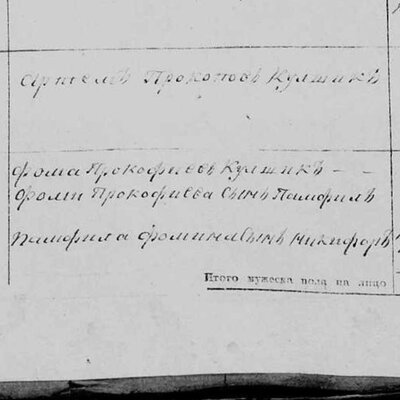 Артемъ Прокоповъ Кулшикъ
Фома Прокофиевъ Кулшикъ - -
Фомы Прокофиева сынъ Памфилъ
Памфила Фомина сынъ Никифоръ
Итого мужеска пола на лицо